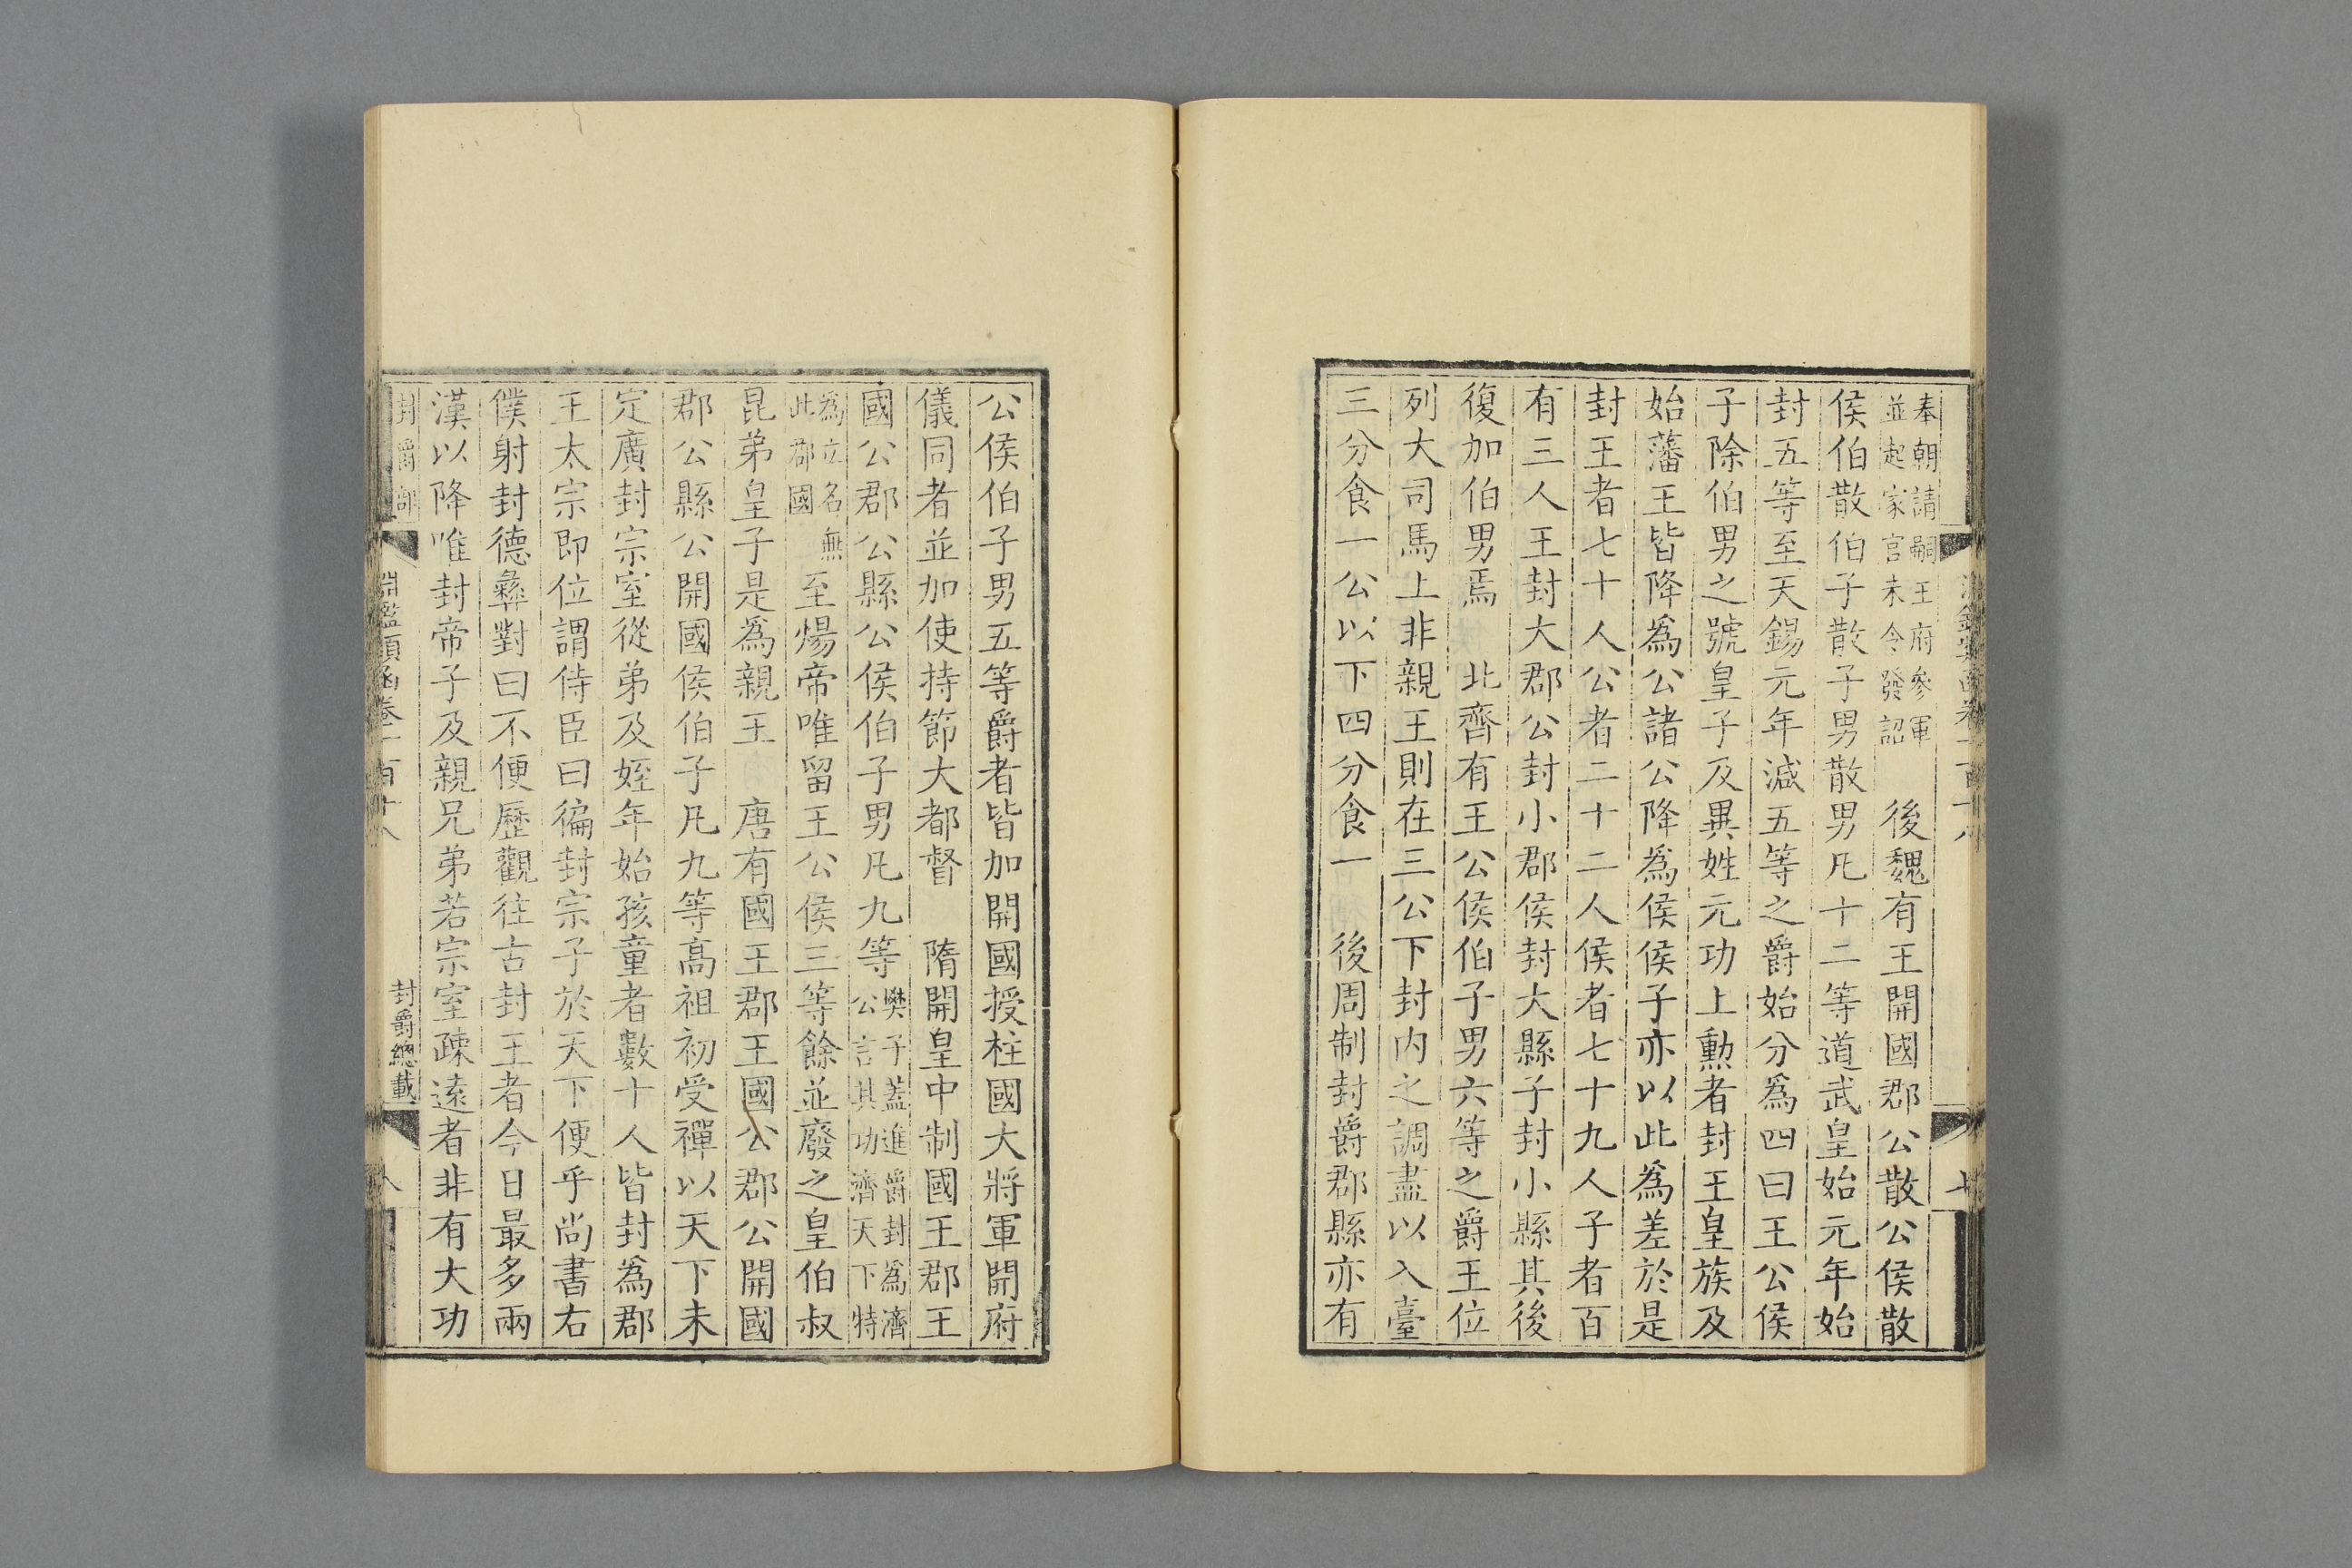 奉朝請嗣王府參軍
並起家官未今發詔
後魏有王開國郡公散公侯散
侯伯散伯子散子男散男凡十二等道武皇始元年始
封五等至天錫元年減五等之爵始分爲四曰王公侯
子除伯男之號皇子及異姓元功上勲者封王皇族及
始藩王皆降爲公諸公降爲侯侯子亦以此爲差於是
封王者七十人公者二十二人侯者七十九人子者百
有三人王封大郡公封小郡侯封大縣子封小縣其後
復加伯男焉 北齊有王公侯伯子男六等之爵王位
列大司馬上非親王則在三公下封内之調盡以入臺
三分食一公以下四分食一 後周制封爵郡縣亦有
七
公侯伯子男五等爵者皆加開國授柱國大將軍開府
儀同者並加使持節大都督 隋開皇中制國王郡王
國公郡公縣公侯伯子男凡九等
樊子蓋進爵封爲濟
公言其功濟天下特
爲立名無
此郡國
至煬帝唯留王公侯三等餘並廢之皇伯叔
昆弟皇子是爲親王 唐有國王郡王國公郡公開國
郡公縣公開國侯伯子凡九等高祖初受禪以天下未
定廣封宗室從弟及姪年始孩童者數十人皆封爲郡
王太宗即位謂侍臣曰徧封宗子於天下便乎尚書右
僕射封德彝對曰不便歷觀往古封王者今日最多兩
漢以降唯封帝子及親兄弟若宗室疎遠者非有大功
封爵部
淵鑑類函卷一百十八
封爵總載
八